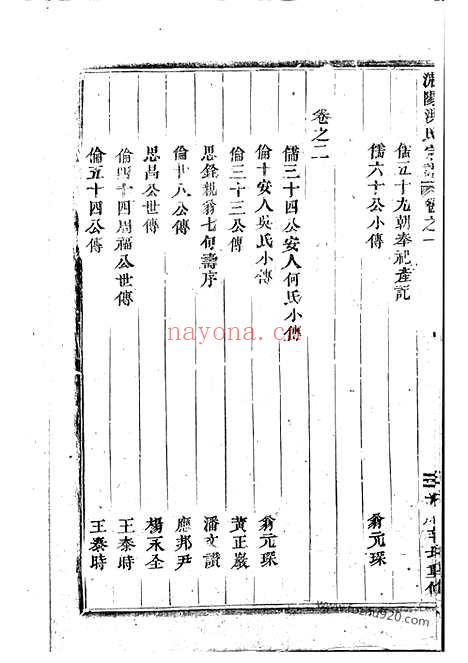 洪氏宗譜 卷之一
儒五十九朝奉祀產記
儒六十公小傳 翁元琛
卷之二
儒三十四公安人何氏小傳
倫十安人吳氏小傳 翁元琛
倫三十三公傳 黃正巖
思銓親翁七旬壽序 潘文讃
倫廿八公傳 應邦尹
思昌公世傳 楊永全
倫四十四周福公世傳 王泰時
倫五十四公傳 王泰時
nayona.cn